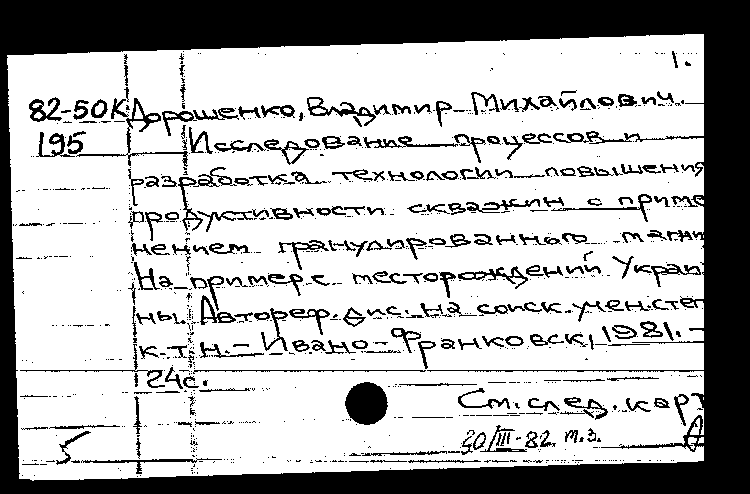 1.
82-50К Дорошенко, Владимир Михайлович.
195 Исследование процессов и
разработка технологии повышения
продуктивности скважин с приме
нением гранулированного магни
На примере месторождений Украи
ны. Автореф. дис. на соиск. учен. степ
к.т.н. - Ивано-Франковск, 1981. -
24с.
См. след. карт
30/III-82 т.з.
5